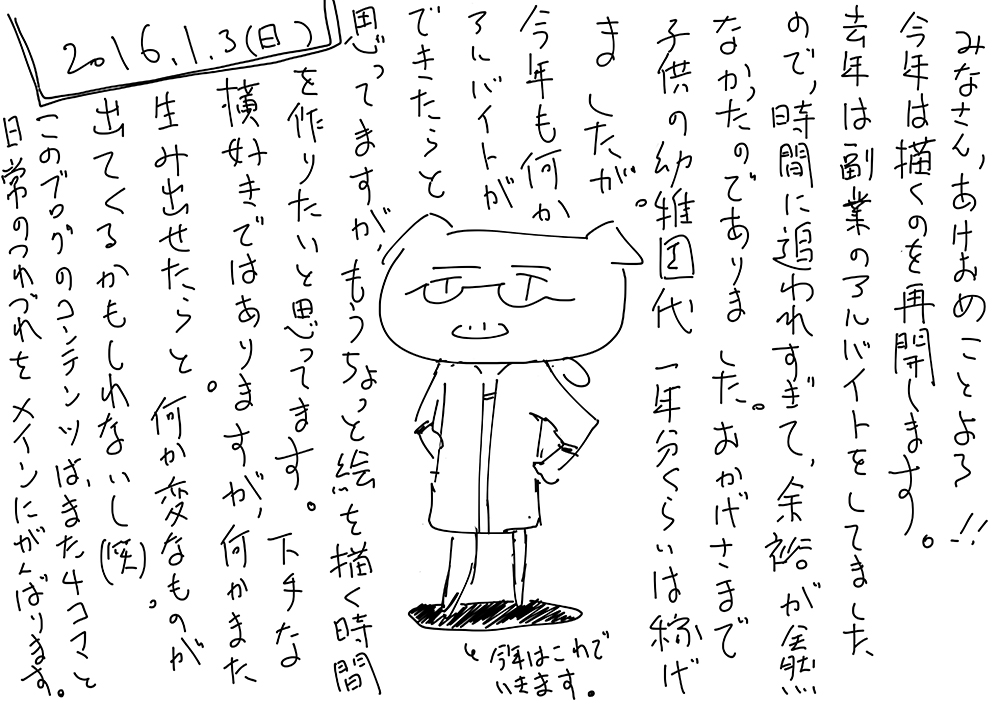 2016.1.3(日)
みなさん,あけおめことよろ!!
今年は描くのを再開します。
去年は副業のアルバイトをしてました
ので,時間に追われすぎて,余裕が全然
なかったのでありました。おかげさまで
子供の幼稚園代一年分くらいは稼げ
ましたが。
今年も何か
アルバイトが
できたらと
思ってますが,もうちょっと絵を描く時間
を作りたいと思ってます。下手な
横好きではありますが,何かまた
生み出せたらと。何か変なものが
出てくるかもしれないし(笑)。
このブログのコンテンツは,また4コマと
日常のつれづれをメインにがんばります。
今年はこれで
いきます。